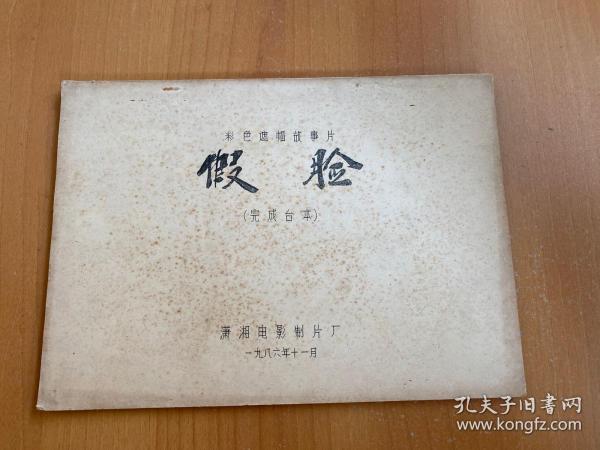 彩色遮幅故事片
假脸
(完成台本)
潇湘电影制片厂
一九八六年十一月
孔夫子旧书网
www.kongfz.com